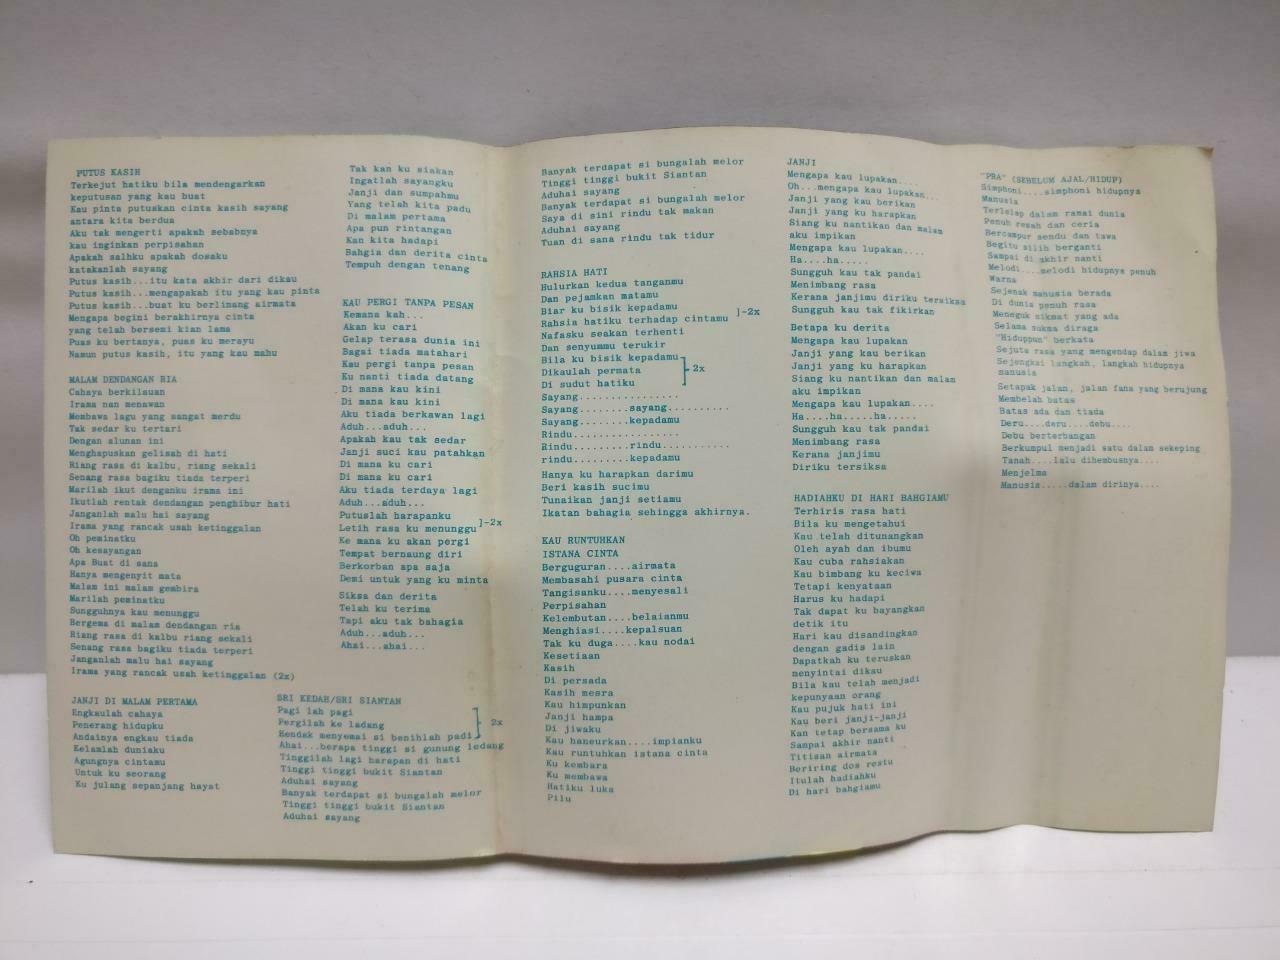 PUTUS KASIH
Terkejut hatiku bila mendengarkan
keputusan yang kau buat
Kau pinta putuskan cinta kasih sayang
antara kita berdua
Aku tak mengerti apakah sebabnya
kau inginkan perpisahan
Apakah salhku apakah dosaku
katakanlah sayang
Putus kasih...itu kata akhir dari dikau
Putus kasih...mengapakah itu yang kau pinta
Putus kasih...buat ku berlinang airmata
Mengapa begini berakhirnya cinta
yang telah bersemi kian lama
Puas ku bertanya, puas ku merayu
Namun putus kasih, itu yang kau mahu
MALAM DENDANGAN RIA
Cahaya berkilauan
Irama nan menawan
Membawa lagu yang sangat merdu
Tak sedar ku tertari
Dengan alunan ini
Menghapuskan gelisah di hati
Riang rasa di kalbu, riang sekali
Senang rasa bagiku tiada terperi
Marilah ikut denganku irama ini
Ikutlah rentak dendangan penghibur hati
Janganlah malu hai sayang
Irama yang rancak usah ketinggalan
Oh peminatku
Oh kesayangan
Apa Buat di sana
Hanya mengenyit mata
Malam ini malam gembira
Marilah peminatku
Sungguhnya kau menunggu
Bergema di malam dendangan ria
Riang rasa di kalbu riang sekali
Senang rasa bagiku tiada terperi
Janganlah malu hai sayang
Irama yang rancak usah ketinggalan (2x)
JANJI DI MALAM PERTAMA
Engkaulah cahaya
Penerang hidupku
Andainya engkau tiada
Kelamlah duniaku
Agungnya cintamu
Untuk ku seorang
Ku julang sepanjang hayat
Tak kan ku siakan
Ingatlah sayangku
Janji dan sumpahmu
Yang telah kita padu
Di malam pertama
Apa pun rintangan
Kan kita hadapi
Bahgia dan derita cinta
Tempuh dengan tenang
KAU PERGI TANPA PESAN
Kemana kah...
Akan ku cari
Gelap terasa dunia ini
Bagai tiada matahari
Kau pergi tanpa pesan
Ku nanti tiada datang
Di mana kau kini
Di mana kau kini
Aku tiada berkawan lagi
Aduh...aduh...
Apakah kau tak sedar
Janji suci kau patahkan
Di mana ku cari
Di mana ku cari
Aku tiada terdaya lagi
Aduh...aduh...
Putuslah harapanku
Letih rasa ku menunggu ]-2x
Ke mana ku akan pergi
Tempat bernaung diri
Berkorban apa saja
Demi untuk yang ku minta
Siksa dan derita
Telah ku terima
Tapi aku tak bahagia
Aduh...aduh...
Ahai...ahai...
SRI KEDAH/SRI SIANTAN
Pagi lah pagi
Pergilah ke ladang ] 2x
Hendak menyemai si benihlah padi
Ahai...berapa tinggi si gunung ledang
Tinggilah lagi harapan di hati
Tinggi tinggi bukit Siantan
Aduhai sayang
Banyak terdapat si bungalah melor
Tinggi tinggi bukit Siantan
Aduhai sayang
Banyak terdapat si bungalah melor
Tinggi tinggi bukit Siantan
Aduhai sayang
Banyak terdapat si bungalah melor
Saya di sini rindu tak makan
Aduhai sayang
Tuan di sana rindu tak tidur
RAHSIA HATI
Hulurkan kedua tanganmu
Dan pejamkan matamu
Biar ku bisik kepadamu
Rahsia hatiku terhadap cintamu ]-2x
Nafasku seakan terhenti
Dan senyummu terukir
Bila ku bisik kepadamu
Dikaulah permata ] 2x
Di sudut hatiku
Sayang...............
Sayang........sayang..........
Sayang........kepadamu
Rindu.................
Rindu.........rindu...........
rindu.........kepadamu
Hanya ku harapkan darimu
Beri kasih sucimu
Tunaikan janji setiamu
Ikatan bahagia sehingga akhirnya.
KAU RUNTUHKAN
ISTANA CINTA
Berguguran....airmata
Membasahi pusara cinta
Tangisanku....menyesali
Perpisahan
Kelembutan....belaianmu
Menghiasi....kepalsuan
Tak ku duga....kau nodai
Kesetiaan
Kasih
Di persada
Kasih mesra
Kau himpunkan
Janji hampa
Di jiwaku
Kau haneurkan....impianku
Kau runtuhkan istana cinta
Ku kembara
Ku membawa
Hatiku luka
Pilu
JANJI
Mengapa kau lupakan....
Oh...mengapa kau lupakan...
Janji yang kau berikan
Janji yang ku harapkan
Siang ku nantikan dan malam
aku impikan
Mengapa kau lupakan....
Ha....ha.....
Sungguh kau tak pandai
Menimbang rasa
Kerana janjimu diriku tersiksa
Sungguh kau tak fikirkan
Betapa ku derita
Mengapa kau lupakan
Janji yang kau berikan
Janji yang ku harapkan
Siang ku nantikan dan malam
aku impikan
Mengapa kau lupakan....
Ha....ha.....ha.....
Sungguh kau tak pandai
Menimbang rasa
Kerana janjimu
Diriku tersiksa
HADIAHKU DI HARI BAHGIAMU
Terhiris rasa hati
Bila ku mengetahui
Kau telah ditunangkan
Oleh ayah dan ibumu
Kau cuba rahsiakan
Kau bimbang ku keciwa
Tetapi kenyataan
Harus ku hadapi
Tak dapat ku bayangkan
detik itu
Hari kau disandingkan
dengan gadis lain
Dapatkah ku teruskan
menyintai dikau
Bila kau telah menjadi
kepunyaan orang
Kau pujuk hati ini
Kau beri janji-janji
Kan tetap bersama ku
Sampai akhir nanti
Titisan airmata
Beriring dos restu
Itulah hadiahku
Di hari bahgiamu
"PRA" (SEBELUM AJAL/HIDUP)
Simphoni....simphoni hidupnya
Manusia
Terlelap dalam ramai dunia
Penuh resah dan ceria
Bercampur sendu dan tawa
Begitu silih berganti
Sampai di akhir nanti
Melodi....melodi hidupnya penuh
Warna
Sejenak manusia berada
Di dunia penuh rasa
Meneguk nikmat yang ada
Selama sukma diraga
"Hiduppun" berkata
Sejuta rasa yang mengendap dalam jiwa
Sejengkal langkah, langkah hidupnya
manusia
Setapak jalan, jalan fana yang berujung
Membelah batas
Batas ada dan tiada
Deru....deru....debu....
Debu berterbangan
Berkumpul menjadi satu dalam sekeping
Tanah....lalu dihembusnya....
Menjelma
Manusia.....dalam dirinya....